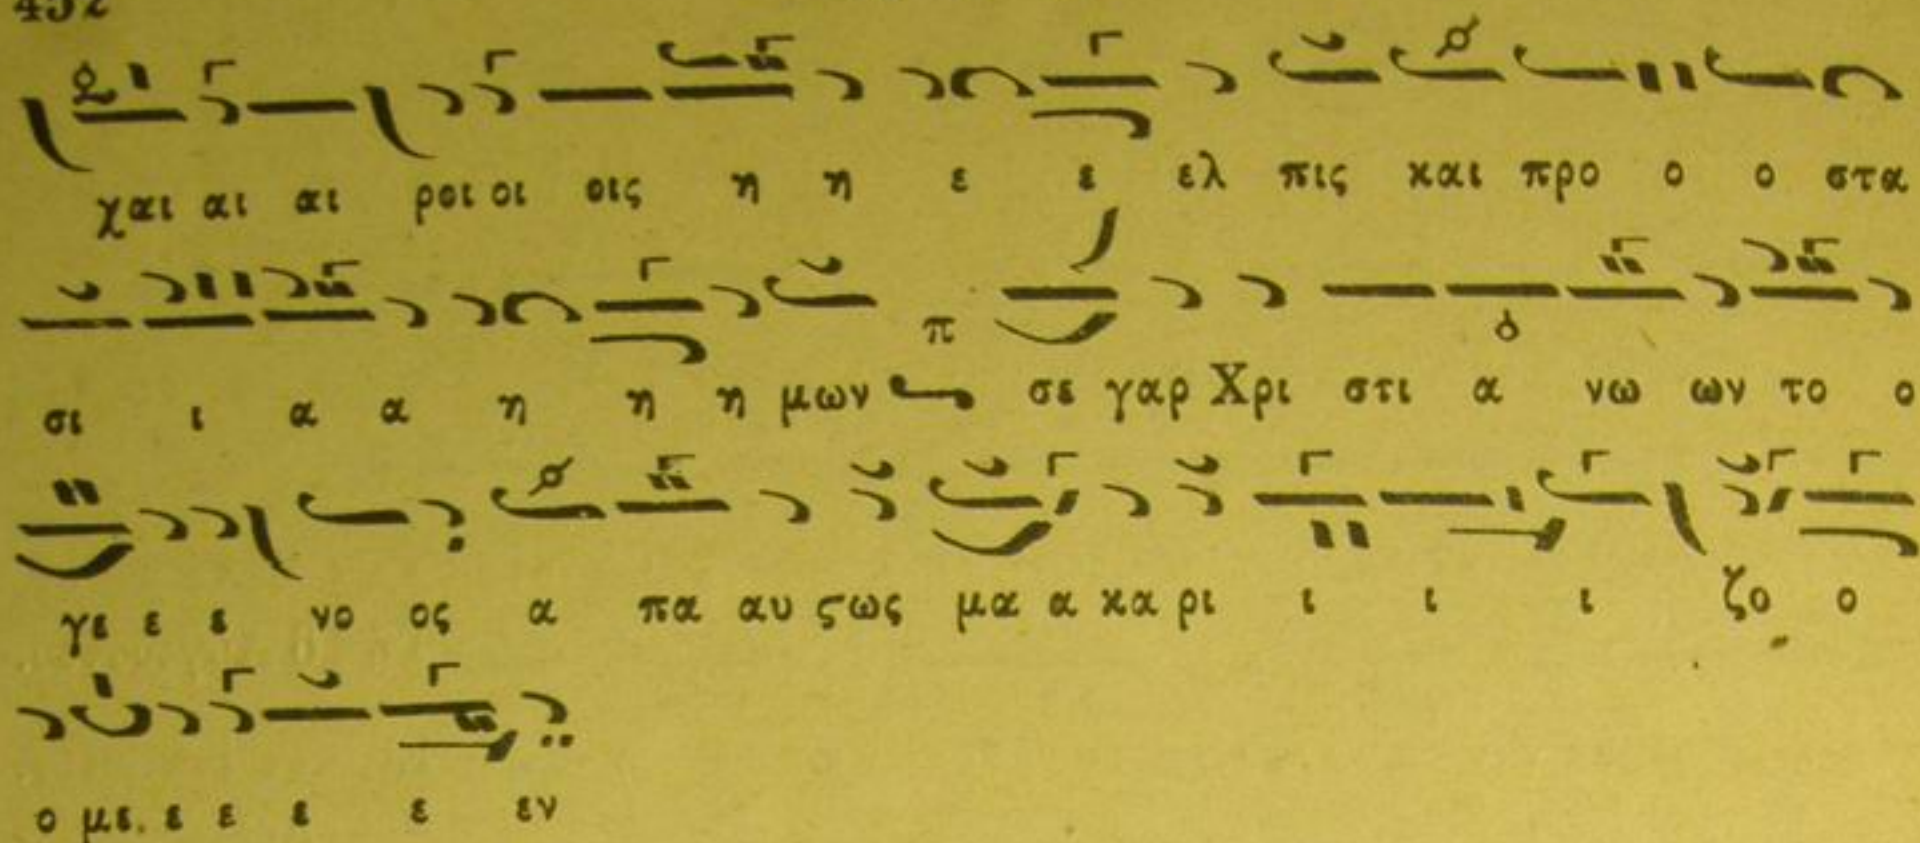 432
χαι αι αι ροι οι οις η η ε ε ελ πις και προ ο ο στα
σι ι α α η η η μων π σε γαρ Χρι στι α νω ων το ο
γε ε ε νο ος α πα αυ ϛως μα α κα ρι ι ι ι ζο ο
ο με. ε ε ε ε εν